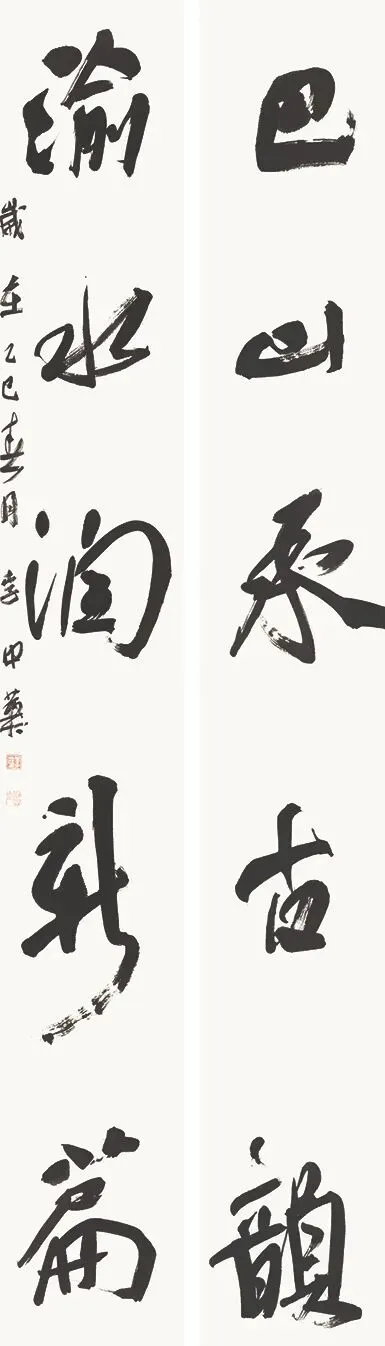 巴山承古韻
渝水潤新篇
歲在乙巳春月李甲藥